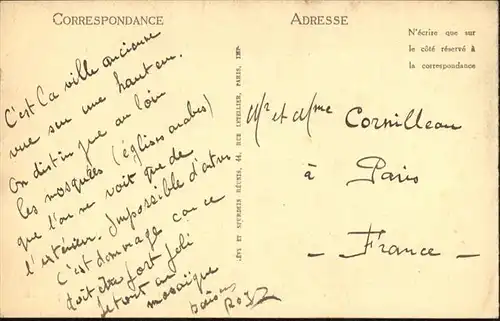 CORRESPONDANCE
ADRESSE
N'écrire que sur
le côté réservé à
la correspondance
C'est la ville ancienne
vue sur une hauteur.
On distingue au loin
les mosquées (églises arabes)
que l'on ne voit que de
l'extérieur. Impossible d'entrer
C'est dommage car ce
doit être fort joli
surtout en
mosaïque
LÉVY ET NEURDEIN RÉUNIS, 44, RUE LETELLIER, PARIS, IMP.
Mr et Mme Cornilleau
à
Paris
- France -